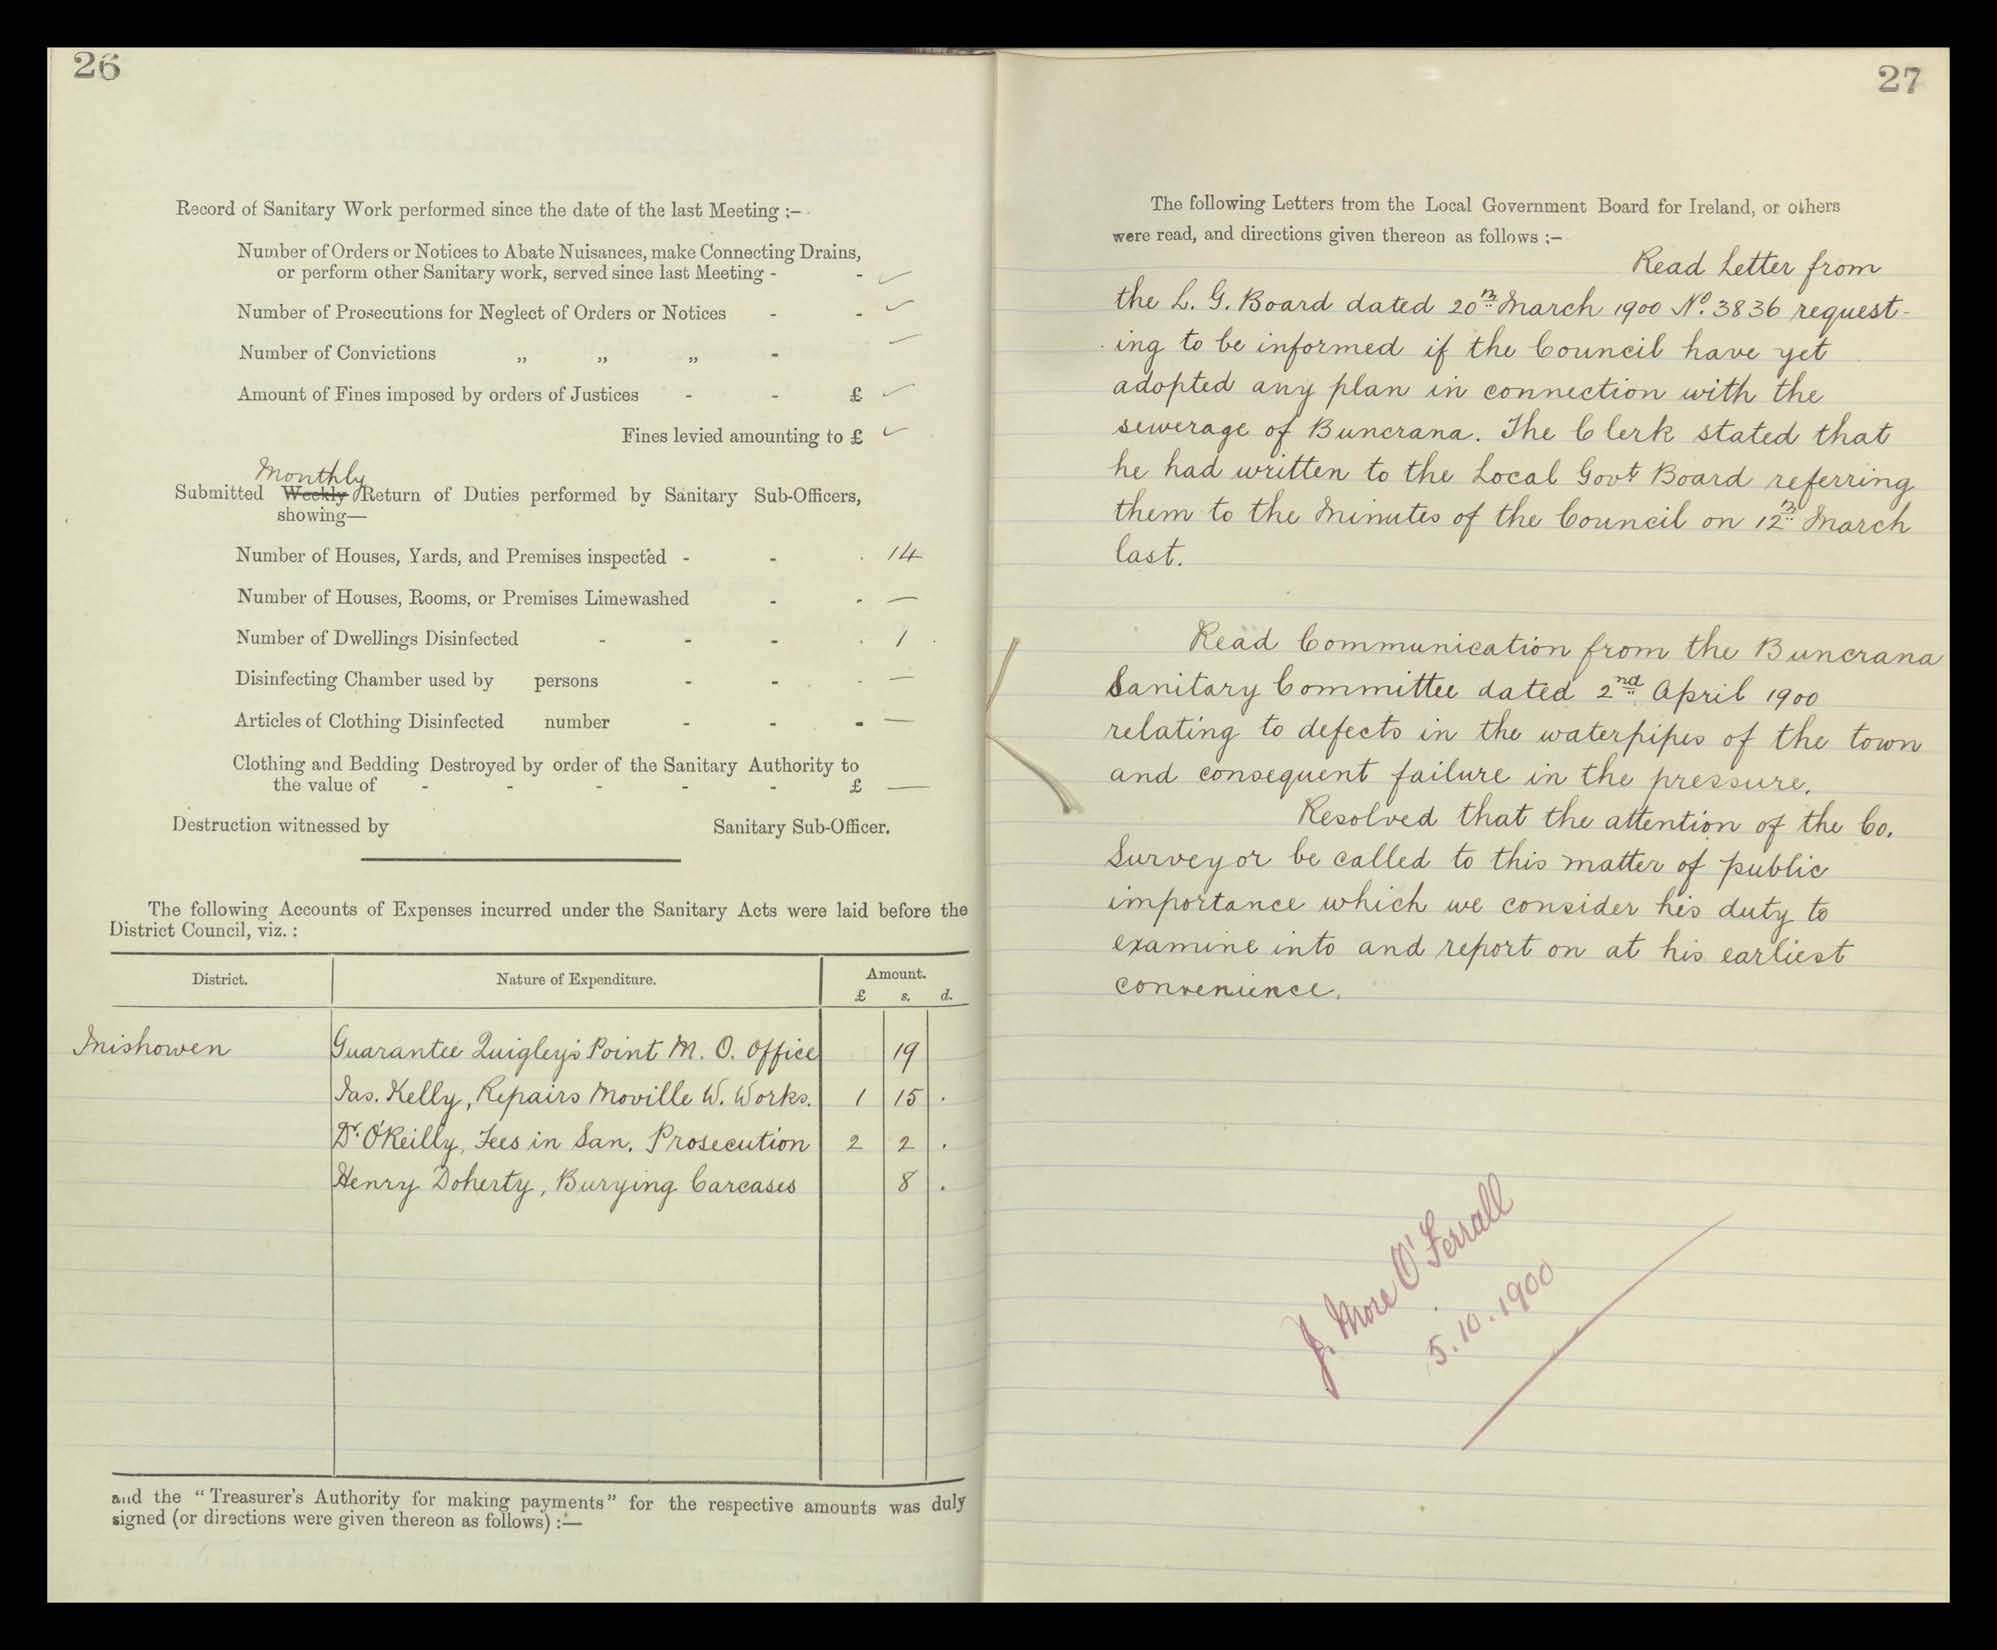 26
Record of Sanitary Work performed since the date of the last Meeting :-
Number of Orders or Notices to Abate Nuisances, make Connecting Drains,
or perform other Sanitary work, served since last Meeting - -
Number of Prosecutions for Neglect of Orders or Notices - -
Number of Convictions „ „ „ -
Amount of Fines imposed by orders of Justices - - £
Fines levied amounting to £
Monthly
Submitted Weekly Return of Duties performed by Sanitary Sub-Officers,
showing—
Number of Houses, Yards, and Premises inspected - - 14
Number of Houses, Rooms, or Premises Limewashed - - —
Number of Dwellings Disinfected - - - 1
Disinfecting Chamber used by persons - - - —
Articles of Clothing Disinfected number - - - —
Clothing and Bedding Destroyed by order of the Sanitary Authority to
the value of - - - - - £ —
Destruction witnessed by Sanitary Sub-Officer.
The following Accounts of Expenses incurred under the Sanitary Acts were laid before the
District Council, viz. :
District. Nature of Expenditure. Amount.
£ s. d.
Inishowen Guarantee Quigley's Point M. O. Office 19
Jas. Kelly, Repairs Moville W. Works. 1 15 .
Dr. O'Reilly, Fees in San. Prosecution 2 2 .
Henry Doherty, Burying Carcases 8 .
and the “Treasurer's Authority for making payments” for the respective amounts was duly
signed (or directions were given thereon as follows) :—
27
The following Letters from the Local Government Board for Ireland, or others
were read, and directions given thereon as follows :-
Read Letter from
the L. G. Board dated 20th March 1900 No. 3836 request-
ing to be informed if the Council have yet
adopted any plan in connection with the
sewerage of Buncrana. The Clerk stated that
he had written to the Local Govt Board referring
them to the Minutes of the Council on 12th March
last.
Read Communication from the Buncrana
Sanitary Committee dated 2nd April 1900
relating to defects in the waterpipes of the town
and consequent failure in the pressure.
Resolved that the attention of the Co.
Surveyor be called to this matter of public
importance which we consider his duty to
examine into and report on at his earliest
convenience.
J. More O'Ferrall
5.10.1900